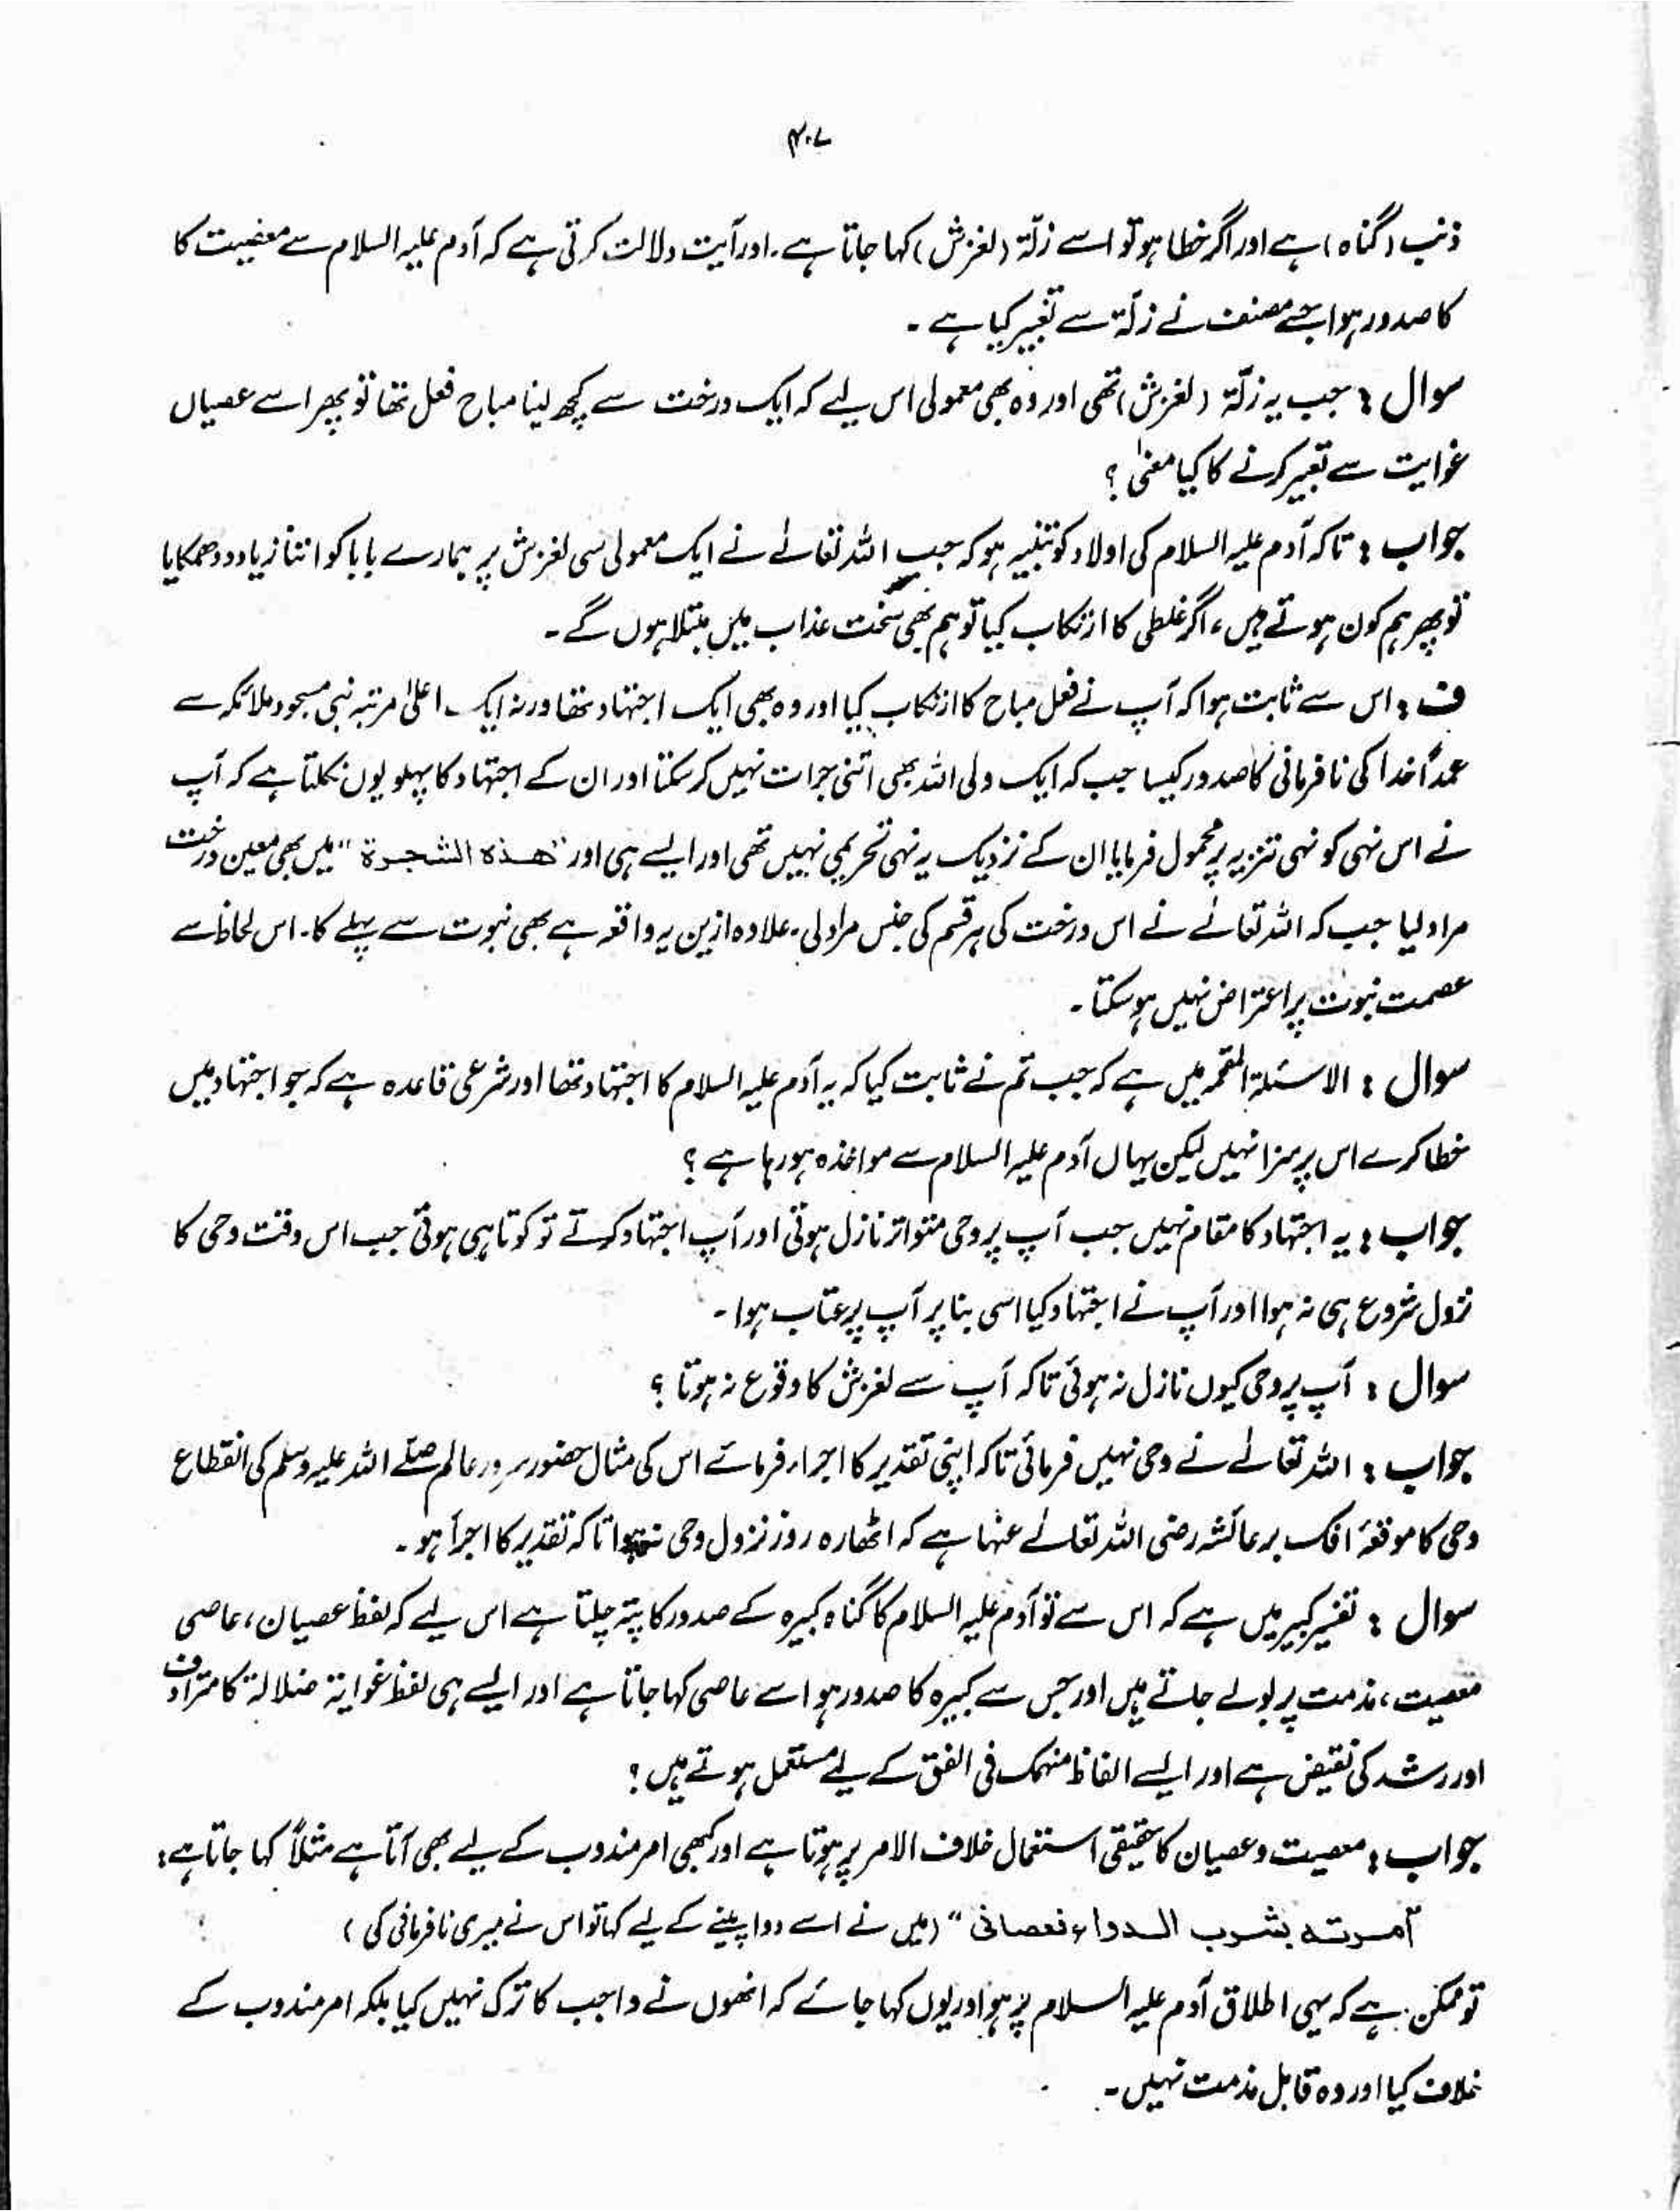 ۴۰۷
ذنب (گناہ) ہے اور اگر خطا ہو تو اسے زلّۃ (لغزش) کہا جاتا ہے۔ اور آیت دلالت کرتی ہے کہ آدم علیہ السلام سے معصیت کا
کا صدور ہوا جسے مصنف نے زلّۃ سے تعبیر کیا ہے ۔
سوال : جب یہ زلّۃ (لغزش) تھی اور وہ بھی معمولی اس لیے کہ ایک درخت سے کچھ لینا مباح فعل تھا تو پھر اسے عصیاں
غوایت سے تعبیر کرنے کا کیا معنیٰ ؟
جواب : تاکہ آدم علیہ السلام کی اولاد کو تنبیہ ہو کہ جب اللہ تعالےٰ نے ایک معمولی سی لغزش پر ہمارے بابا کو اتنا زیادہ دھمکایا
تو پھر ہم کون ہوتے ہیں ، اگر غلطی کا ارتکاب کیا تو ہم بھی سخت عذاب میں مبتلا ہوں گے ۔
ف : اس سے ثابت ہوا کہ آپ نے فعل مباح کا ارتکاب کیا اور وہ بھی ایک اجتہاد تھا ورنہ ایک اعلیٰ مرتبہ نبی مسجود ملائکہ سے
عمداً خدا کی نافرمانی کا صدور کیسا جب کہ ایک ولی اللہ بھی اتنی جرات نہیں کر سکتا اور ان کے اجتہاد کا پہلو یوں نکلتا ہے کہ آپ
نے اس نہی کو نہی تنزیہ پر محمول فرمایا ان کے نزدیک یہ نہی تحریمی نہیں تھی اور ایسے ہی اور "ھذہ الشجرۃ" میں بھی معین درخت
مراد لیا جب کہ اللہ تعالےٰ نے اس درخت کی ہر قسم کی جنس مراد لی ۔ علاوہ ازیں یہ واقعہ ہے بھی نبوت سے پہلے کا ۔ اس لحاظ سے
عصمت نبوت پر اعتراض نہیں ہو سکتا ۔
سوال : الاسئلۃ المقحمہ میں ہے کہ جب تم نے ثابت کیا کہ یہ آدم علیہ السلام کا اجتہاد تھا اور شرعی قاعدہ ہے کہ جو اجتہاد میں
خطا کرے اس پر سزا نہیں لیکن یہاں آدم علیہ السلام سے مواخذہ ہو رہا ہے ؟
جواب : یہ اجتہاد کا مقام نہیں جب آپ پر وحی متواتر نازل ہوتی اور آپ اجتہاد کرتے تو کوتاہی ہوتی جب اس وقت وحی کا
نزول شروع ہی نہ ہوا اور آپ نے اجتہاد کیا اسی بنا پر آپ پر عتاب ہوا ۔
سوال : آپ پر وحی کیوں نازل نہ ہوئی تاکہ آپ سے لغزش کا وقوع نہ ہوتا ؟
جواب : اللہ تعالےٰ نے وحی نہیں فرمائی تاکہ اپنی تقدیر کا اجراء فرمائے اس کی مثال حضور سرور عالم صلے اللہ علیہ وسلم کی انقطاع
وحی کا موقعۂ افک بر عائشہ رضی اللہ تعالےٰ عنہا ہے کہ اٹھارہ روز نزول وحی نہ ہوا تاکہ تقدیر کا اجرأ ہو ۔
سوال : تفسیر کبیر میں ہے کہ اس سے تو آدم علیہ السلام کا گناہ کبیرہ کے صدور کا پتہ چلتا ہے اس لیے کہ لفظ عصیان ، عاصی
معصیت ، مذمت پر بولے جاتے ہیں اور جس سے کبیرہ کا صدور ہو اسے عاصی کہا جاتا ہے اور ایسے ہی لفظ غوایۃ ضلالۃ کا مترادف
اور رشد کی نقیض ہے اور ایسے الفاظ منہمک فی الفسق کے لیے مستعمل ہوتے ہیں ؟
جواب : معصیت و عصیان کا حقیقی استعمال خلاف الامر پر ہوتا ہے اور کبھی امر مندوب کے لیے بھی آتا ہے مثلاً کہا جاتا ہے :
"امرتہ بشرب الدواء فعصانی" (میں نے اسے دوا پینے کے لیے کہا تو اس نے میری نافرمانی کی )
تو ممکن ہے کہ یہی اطلاق آدم علیہ السلام پر ہو اور یوں کہا جائے کہ انھوں نے واجب کا ترک نہیں کیا بلکہ امر مندوب کے
خلاف کیا اور وہ قابل مذمت نہیں ۔